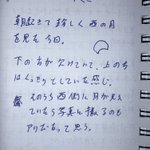 朝起きて珍しく西の月
を見た今回。
下の方が欠けていて、上の方
はくっきりとしている感じ。
そのうち西側に月が見え
ていたら写真に撮るのも
アリだなって思う。